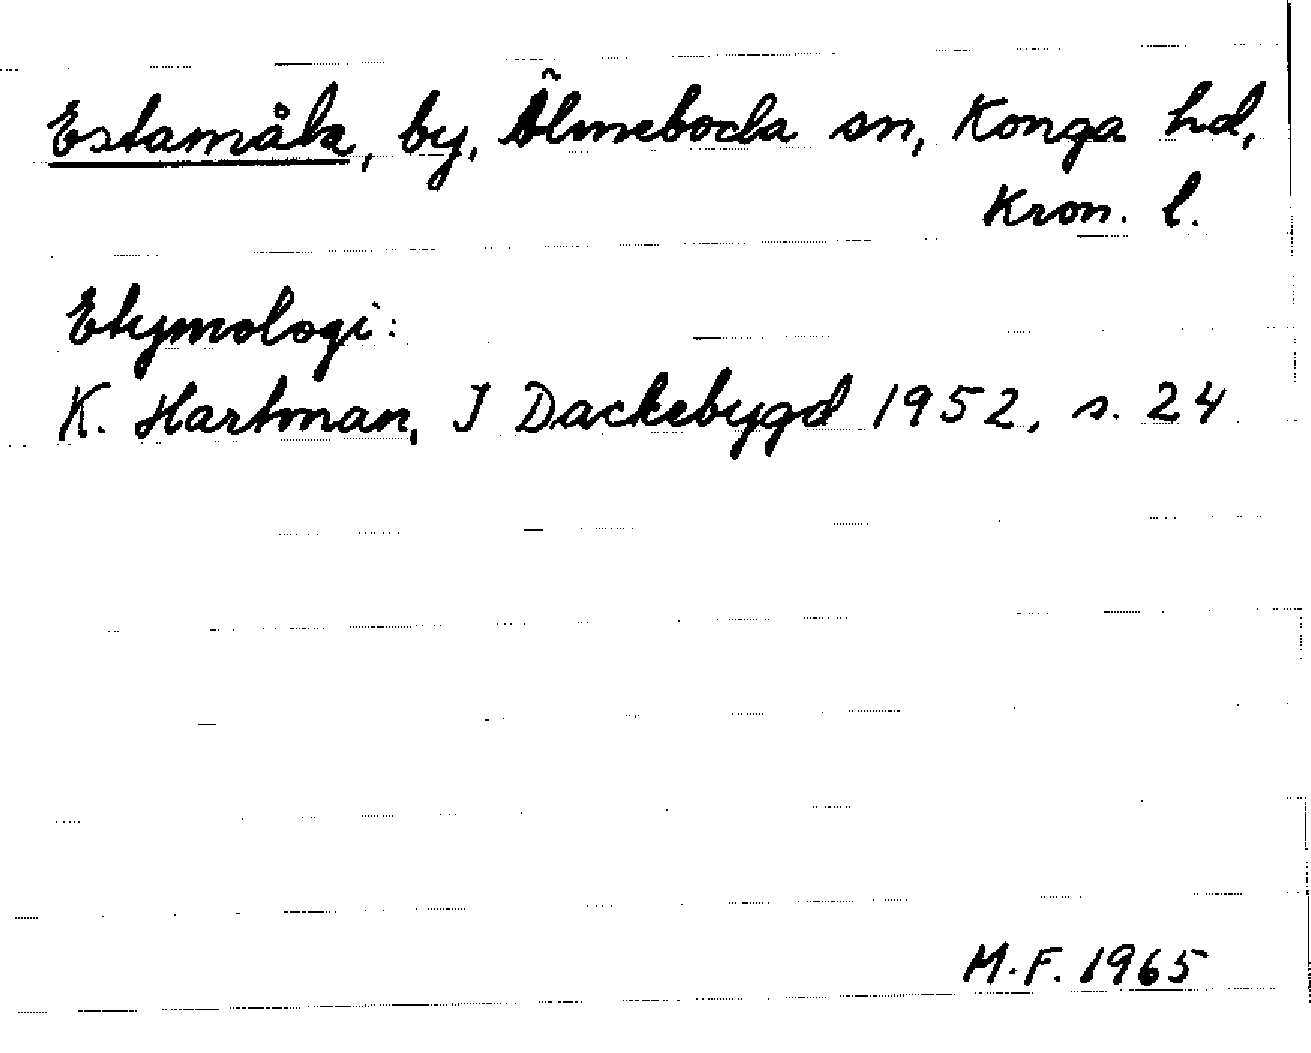 Estamåla, by, Älmeboda sn, Konga hd,
Kron. l.
Etymologi:
K. Hartman, I Dackebygd 1952, s. 24
M.F. 1965